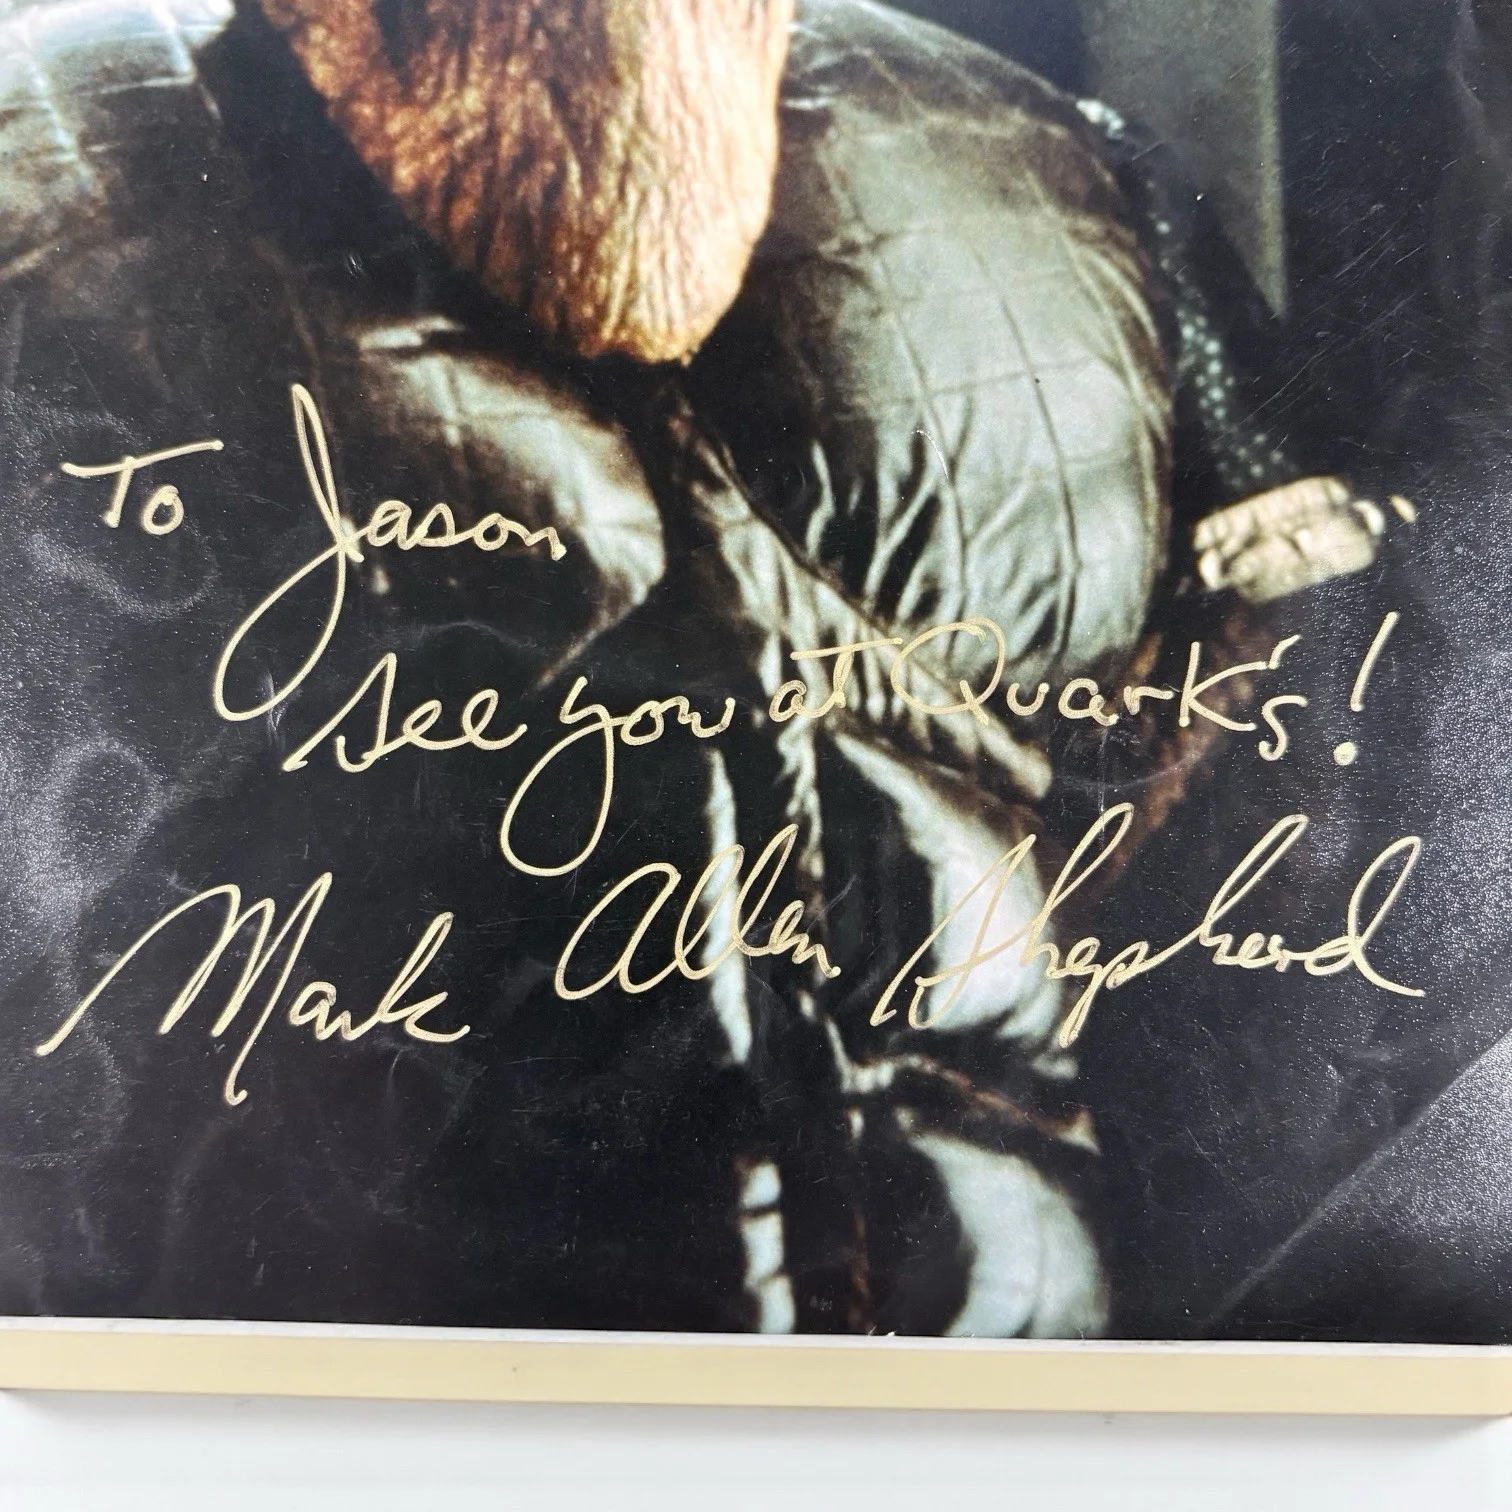 To Jason
See you at Quark's!
Mark Allen Shepherd